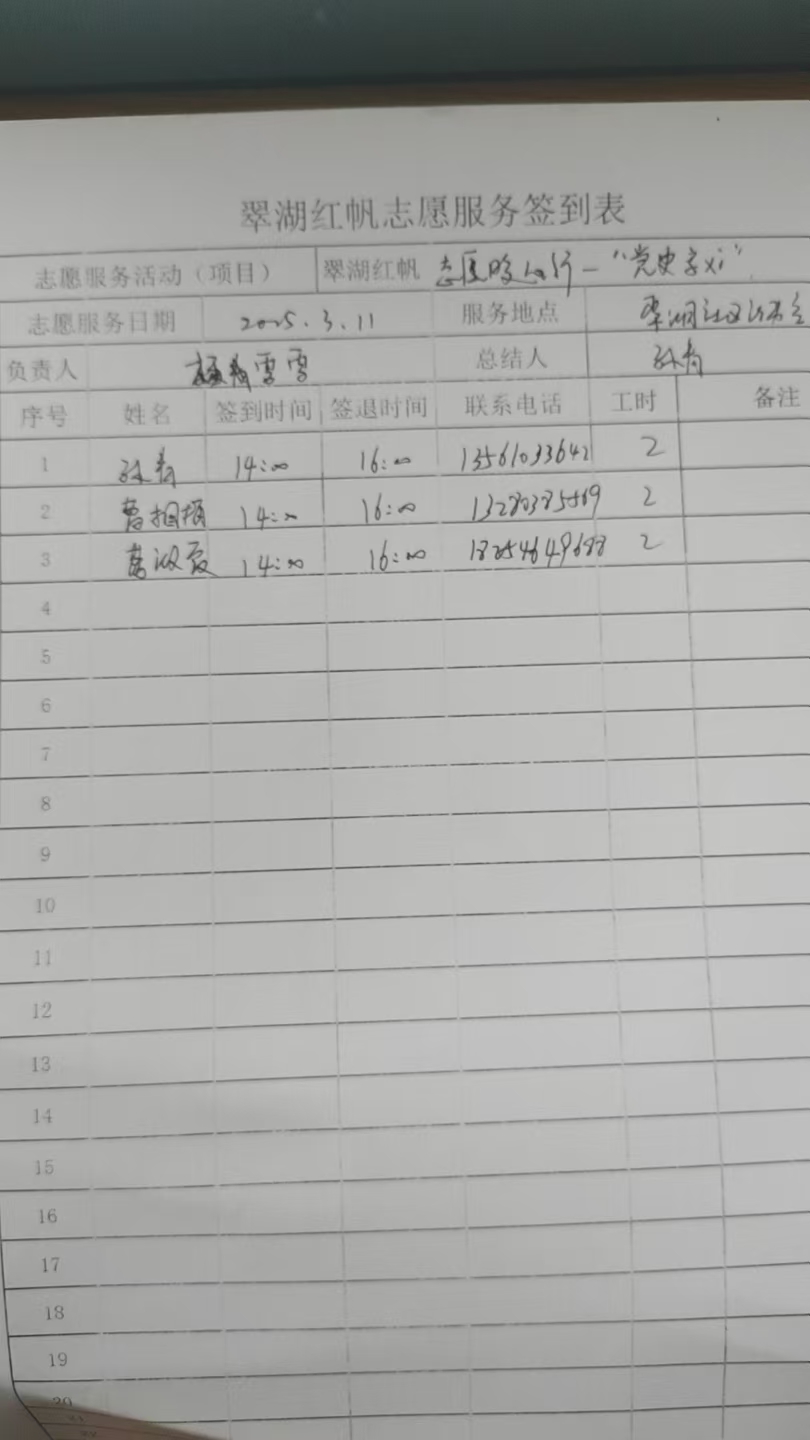 翠湖红帆志愿服务签到表
志愿服务活动（项目） 翠湖红帆 志愿 行一"党史学xi"
志愿服务日期 2025.3.11 服务地点 翠湖社区
负责人 雪雪 总结人 孙青
序号 姓名 签到时间 签退时间 联系电话 工时 备注
1 孙青 14:00 16:00 13561033642 2
2 曹 14:00 16:00 2
3 14:00 16:00 2
4
5
6
7
8
9
10
11
12
13
14
15
16
17
18
19
20
21
22